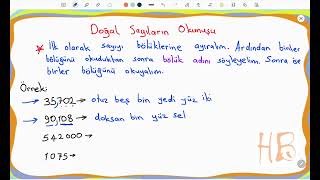 Doğal Sayıların Okunuşu
* İlk olarak sayıyı bölüklerine ayıralım. Ardından binler
bölüğünü okuduktan sonra bölük adını söyleyelim. Sonra ise
birler bölüğünü okuyalım.
Örnek:
→ 35,702 → otuz beş bin yedi yüz iki
→ 90,108 → doksan bin yüz sek
542000 →
1075 →
HB